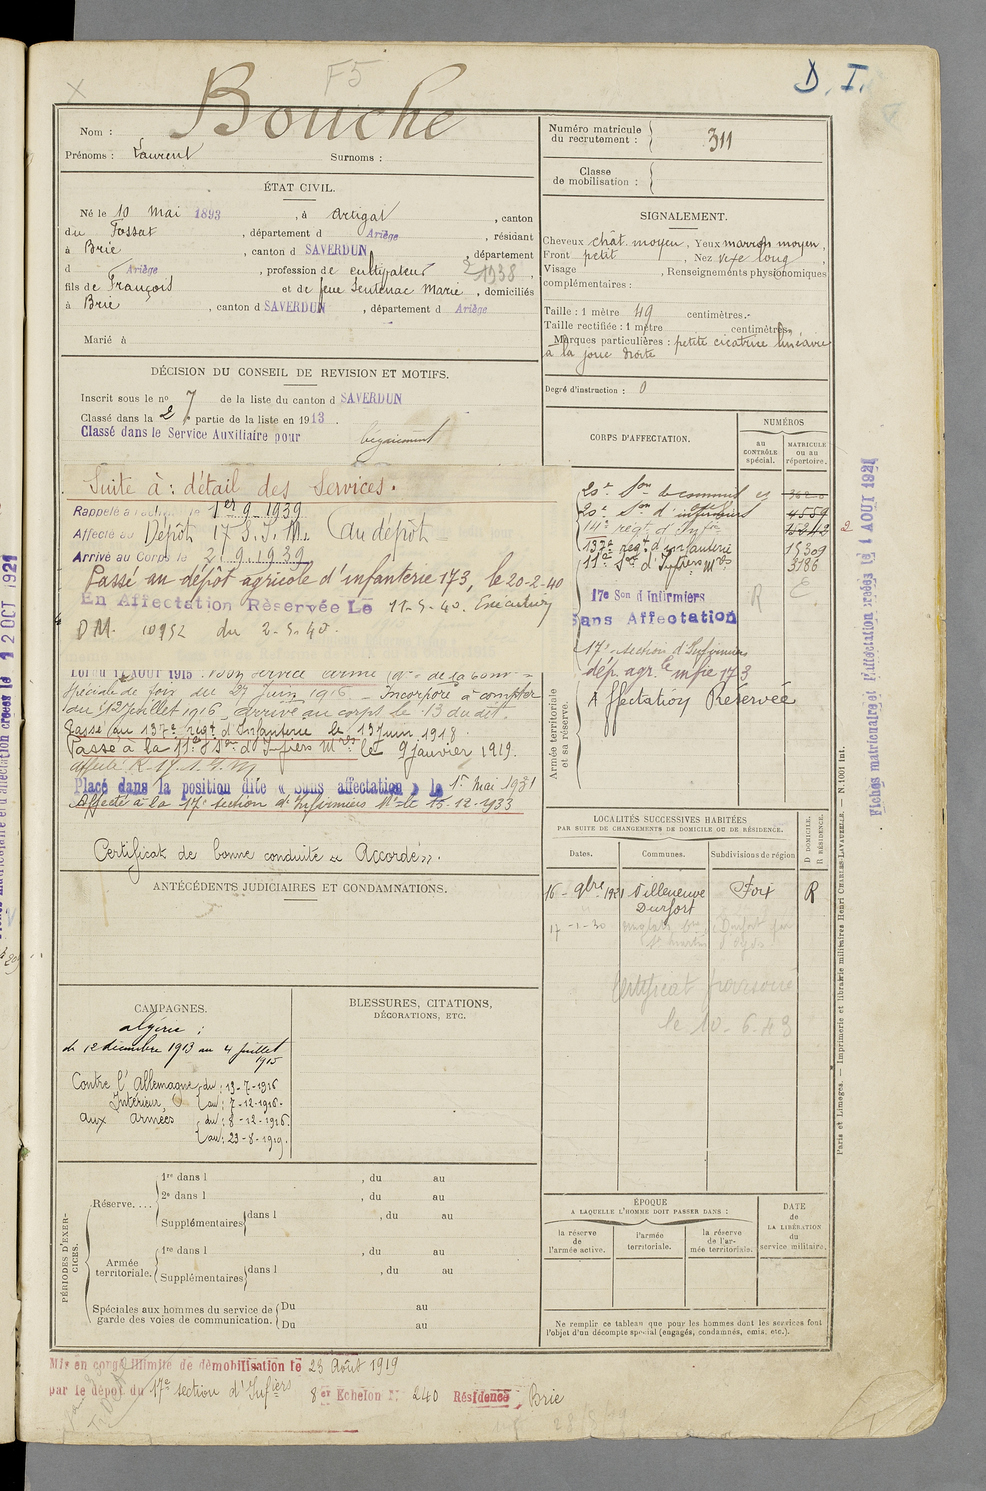 F5
D. I.
Nom : Bouche
Prénoms : Laurent Surnoms :
Numéro matricule du recrutement : 311
Classe de mobilisation :
ÉTAT CIVIL.
Né le 10 mai 1893, à Artigat, canton
du Fossat, département d Ariège, résidant
à Brie, canton d SAVERDUN, département
d Ariège, profession de cultivateur
1938
fils de François et de feue Sentenac Marie, domiciliés
à Brie, canton d SAVERDUN, département d Ariège
Marié à
SIGNALEMENT.
Cheveux chât. moyen, Yeux marron moyen,
Front petit, Nez long,
Visage , Renseignements physionomiques
complémentaires :
Taille : 1 mètre 49 centimètres.
Taille rectifiée : 1 mètre centimètres.
Marques particulières : petite cicatrice linéaire
à la joue droite
Degré d'instruction : 0
DÉCISION DU CONSEIL DE REVISION ET MOTIFS.
Inscrit sous le no 7 de la liste du canton d SAVERDUN
Classé dans la 2 partie de la liste en 1913.
Classé dans le Service Auxiliaire pour bégaiement
Suite à : détail des Services.
Rappelé à l'activité le 1er 9 1939
Affecté au Dépôt 17 S.I.M. (au dépôt
Arrivé au Corps le 2.9.1939
Passé au dépôt agricole d'infanterie 173, le 20-2-40
En Affectation Réservée Le 11-5-40. Exécution
DM. 10952 du 2-5-40.
Loi du 17 AOUT 1915 :
spéciale de Foix du 27 juin 1916 - Incorporé à compter
du 12 juillet 1916, arrivé au corps le 13 du dit.
Passé au 137e régt d'Infanterie le 13 juin 1918
Passé à la 11e Son d'Infiers Mres le 9 janvier 1919.
Placé dans la position dite « Sans affectation » le 1er Mai 1921
Affecté à la 17e section d'Infirmiers Mre le 15-12-1933
Certificat de bonne conduite « Accordé ».
CORPS D'AFFECTATION.
NUMÉROS
au CONTRÔLE spécial.
MATRICULE ou au répertoire.
20e Son de commis
20e Son d'infirmiers 4559
14e régt d'Infie
137e régt d'infanterie 15309
11e Son d'Infiers Mres 3186
17e Son d'Infirmiers R
Sans Affectation
17e section d'Infirmiers
dép. agr. infie 173
Affectation Réservée
Armée territoriale et sa réserve.
LOCALITÉS SUCCESSIVES HABITÉES
PAR SUITE DE CHANGEMENTS DE DOMICILE OU DE RÉSIDENCE.
Dates. Communes. Subdivisions de région
D DOMICILE. R RÉSIDENCE.
16-9bre 1921 Villeneuve Durfort Foix R
17-1-30
Certificat provisoire
le 10-6-43
ANTÉCÉDENTS JUDICIAIRES ET CONDAMNATIONS.
CAMPAGNES.
algérie :
du 12 décembre 1913 au 4 juillet
1915
Contre l'Allemagne du : 13-7-1916
Intérieur au : 7-12-1916
aux armées du : 8-12-1916.
au : 23-8-1919.
BLESSURES, CITATIONS,
DÉCORATIONS, ETC.
PÉRIODES D'EXERCICES.
Réserve....
1re dans l , du au
2e dans l , du au
Supplémentaires dans l , du au
Armée territoriale.
1re dans l , du au
Supplémentaires dans l , du au
Spéciales aux hommes du service de garde des voies de communication.
Du au
Du au
ÉPOQUE
A LAQUELLE L'HOMME DOIT PASSER DANS :
la réserve de l'armée active.
l'armée territoriale.
la réserve de l'armée territoriale.
DATE de LA LIBÉRATION du service militaire.
Ne remplir ce tableau que pour les hommes dont les services font
l'objet d'un décompte spécial (engagés, condamnés, omis, etc.).
Mis en congé illimité de démobilisation le 23 Août 1919
par le dépôt du 17e section d'Infiers 8er Echelon N° 240 Résidence, Brie
Paris et Limoges. — Imprimerie et librairie militaires Henri CHARLES-LAVAUZELLE. — N. 1001 int.
Fiches matriculaire et d'affectation créées le 1 AOUT 1921
12 OCT 1921